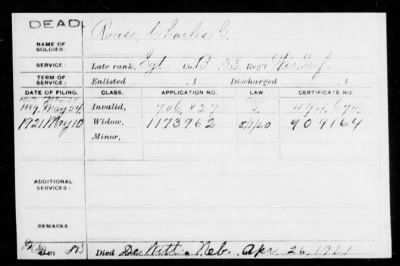 DEAD
NAME OF SOLDIER: Rouse, Charles G.
SERVICE: Late rank, Sgt. Co. B, 53, Reg't Inf.
TERM OF SERVICE: Enlisted , 1 Discharged , 1
DATE OF FILING. CLASS. APPLICATION NO. LAW CERTIFICATE NO.
May 24 Invalid, 706827
1921 May 10 Widow, 1173962 5/1/20 909164
Minor,
ADDITIONAL SERVICES:
REMARKS
Died De Witt, Neb. Apr 26, 1921